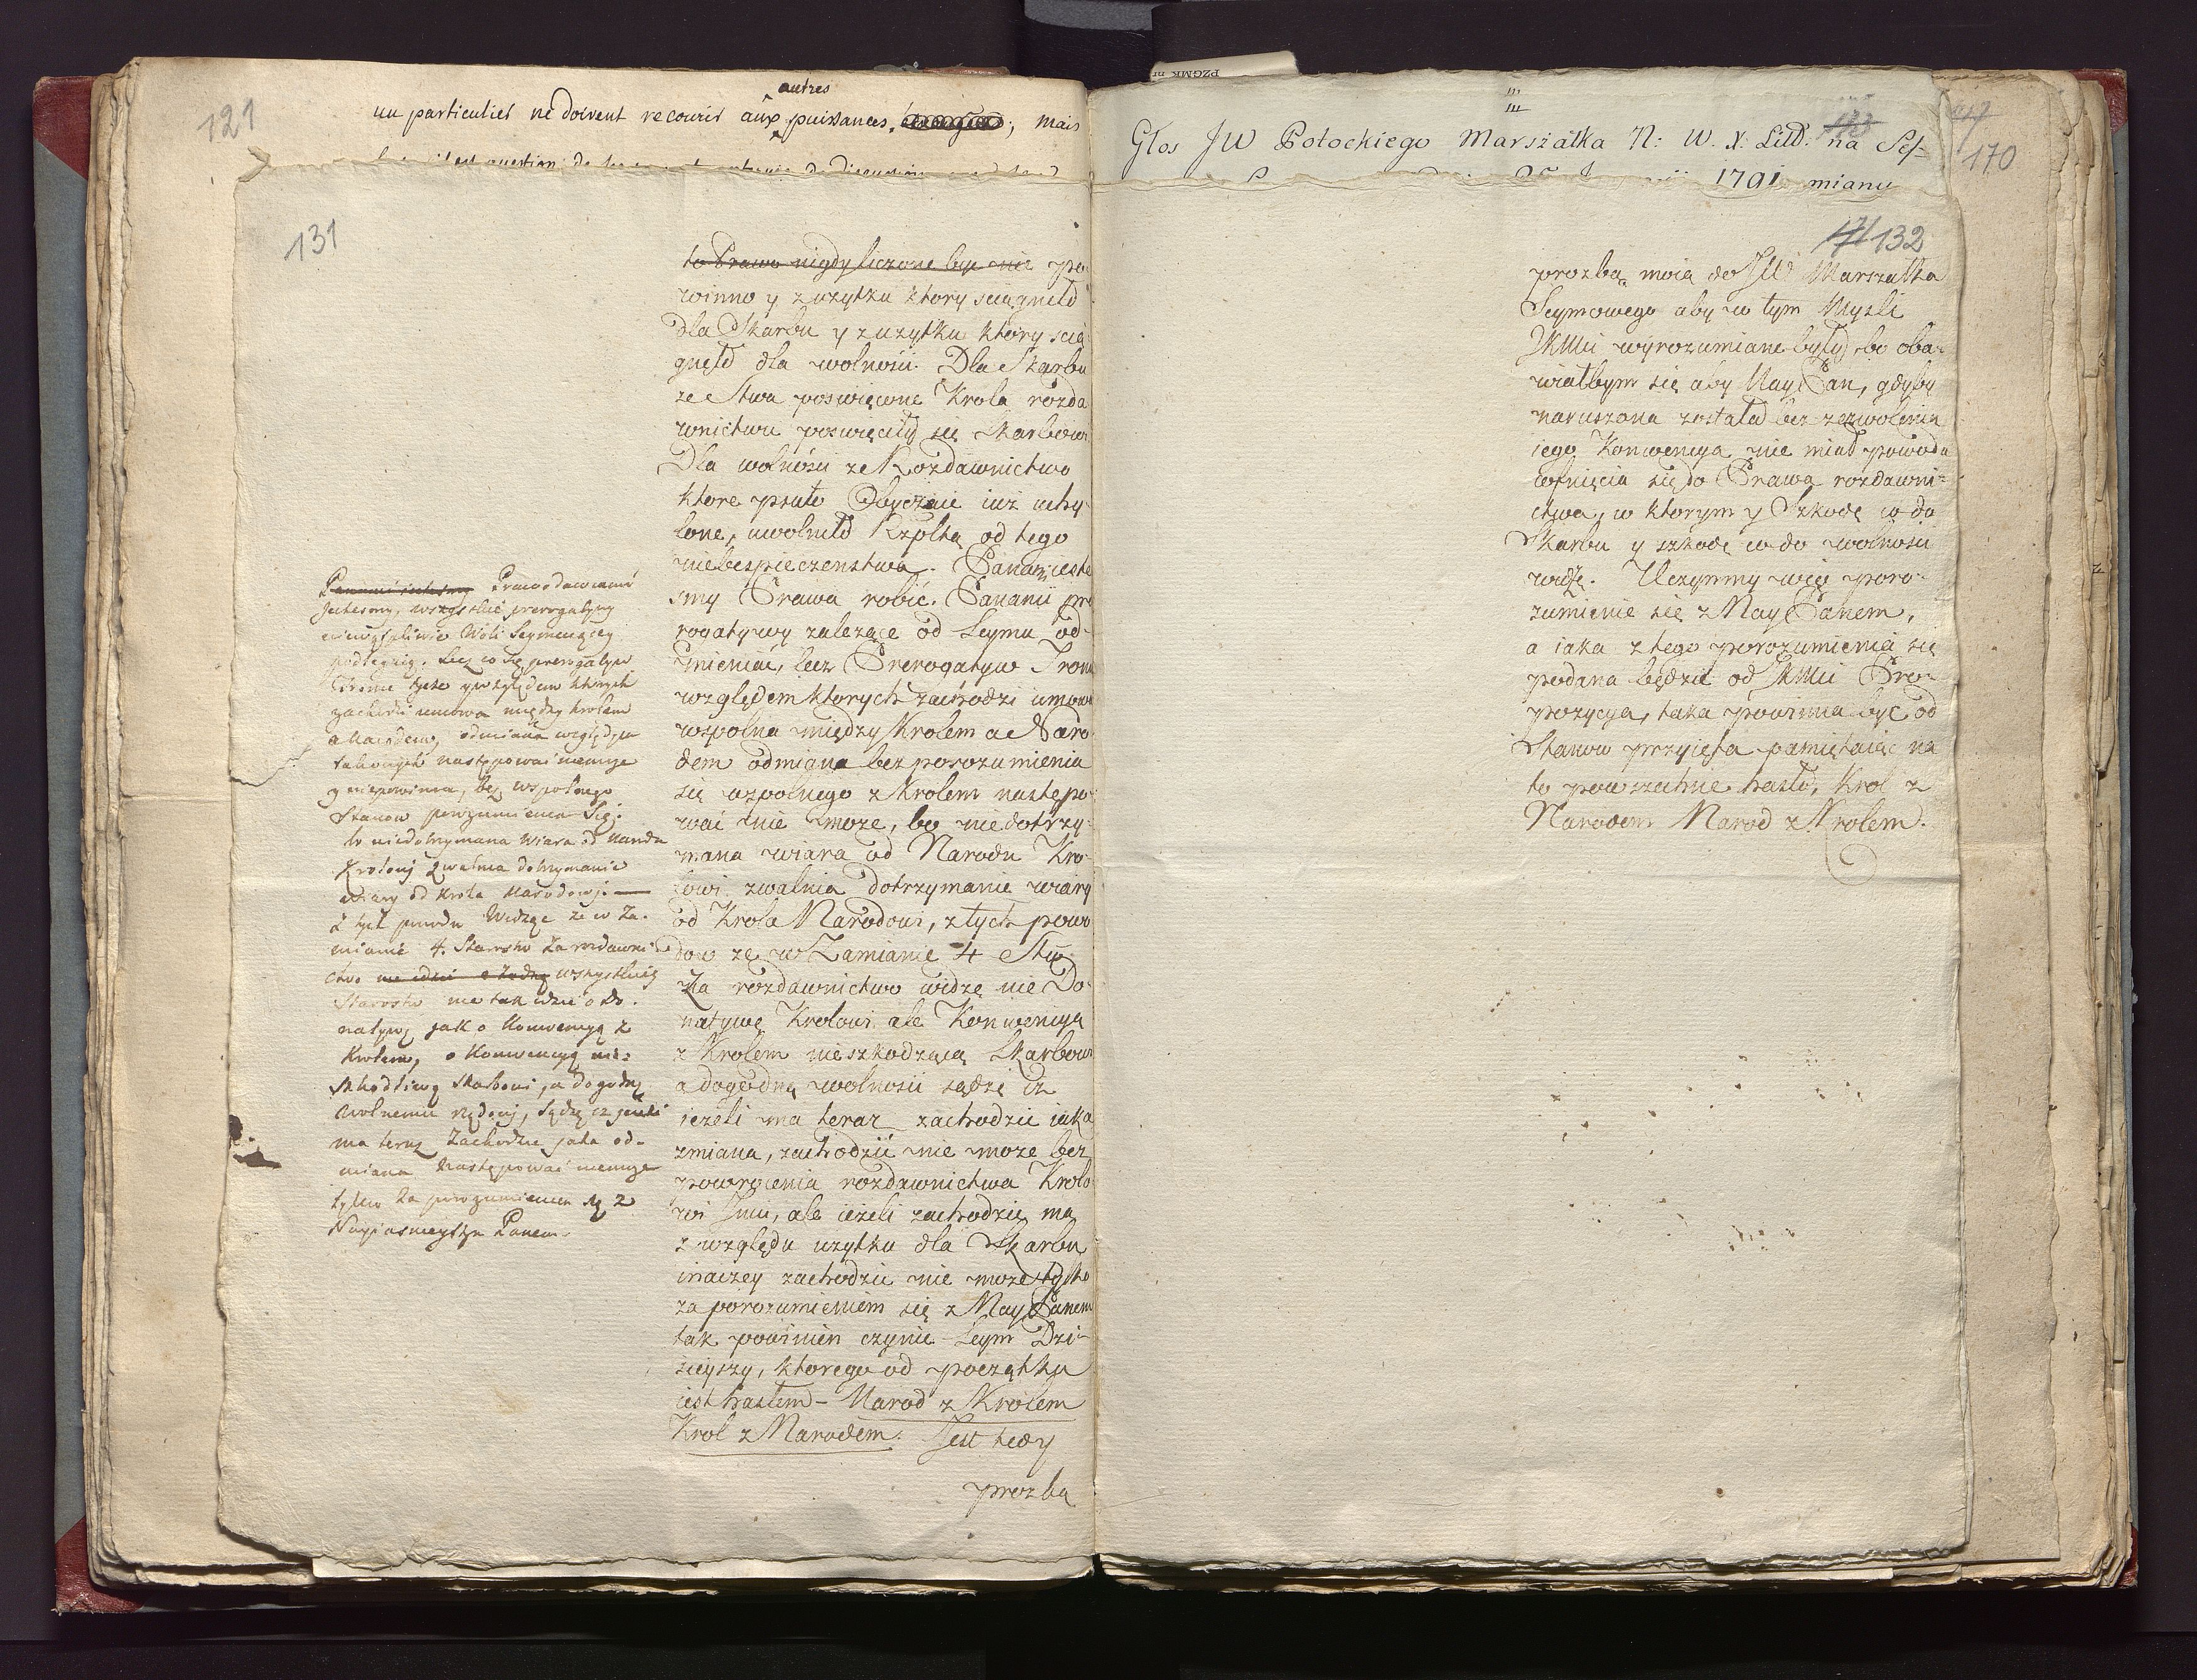 121
autres
un particulier ne doivent recourir aux puissances, ; mais
131
to Prawo nigdy liczone być nie po-
winno y z uzytku ktory sciągneło
dla Skarbu y z uzytku ktory scią-
gneło dla wolnosci. Dla Skarbu
ze Stwa poswięcone Krola rozda
wnictwu poswięciły się Skarbowi
Dla wolnosci ze Rozdawnictwo
ktore psuło Obyczaie iuz uchy-
lone, uwolniło Rzpltą od tego
niebespieczenstwa. Panami ieste
smy Prawa robić. Panami pre
rogatywy zalezące od Seymu od-
mieniać, lecz Prerogatyw Tronu
względem ktorych zachodzi umowa
wspolna między Krolem a Naro
dem odmiana bez porozumienia
się wspolnego z Krolem nastepo-
wać nie moze, bo niedotrzy-
mana wiara od Narodu Kro-
lowi zwalnia dotrzymanie wiary
od Krola Narodowi, z tych powo
dow ze w Zamianie 4 Stw
Za rozdawnictwo widzę nie Do-
natywę Krolowi ale Konwencyą
z Krolem nieszkodzącą Skarbowi
a dogodną wolnosci sądzę iz
iezeli ma teraz zachodzic iaka
zmiana, zachodzić nie moze bez
powrocenia rozdawnictwa Krolo
wi Jmu, ale iezeli zachodzić ma
z względu uzytku dla Skarbu
inaczey zachodzic nie moze tylko
za porozumieniem się z Nay Panem
tak powinien czynic Seym Dzi-
sieyszy, ktorego od początku
iest hasłem - Narod z Krolem
Krol z Narodem. Jest tedy
prozba
Panami jestesmy Prawodawcami
jestesmy, wszystkie prerogatywy
niewątpliwie Woli Seymuiącey
podlegaią. Lecz co się prerogatyw
Tronu tycze y względem ktorych
zachodzi umowa między Krolem
a Narodem, odmiana względem
takowych nastepować niemoze
y niepowinna, bez wspolnego
Stanow porozumienia Się.
bo niedotrzymana Wiara od Narodu
Krolowi zwalnia dotrzymanie
wiary od Krola Narodowi. —
Z tych powodow Widząc ze w Za-
mianie 4. Starostw za rozdawni
ctwo nie idzie o żadną wszystkich
Starostw nie tak idzie o do-
natywę jak o Konwencyą z
Krolem, o Konwencyą nie-
szkodliwą Skarbowi, a dogodną
Wolnemu rządowi, Sądzę iz jezeli
ma teraz Zachodzic jaka od-
miana Nastepować niemoze
tylko za porozumieniem się z
Nayiasnieyszym Panem.
Głos JW Potockiego Marszałka N: W. X: Litt: na Ses-
1791 mianu
170
132
prozbą moią do JW Marszałka
Seymowego aby w tym Mysli
JKMci wyrozumiane były, bo oba-
wiałbym się aby Nay Pan, gdyby
naruszona została bez zezwolenia
iego Konwencya nie miał powodu
cofnięcia się do Prawa rozdawni-
ctwa, w ktorym y Szkodę co do
Skarbu y szkodę co do wolnosci
widzę. Uczynmy więc poro-
zumienie się z Nay Panem,
a iaka z tego porozumienia się
podana będzie od JKMci Pro-
pozycya, taka powinna być od
Stanow przyięta pamiętaiąc na
to powszechnie hasło, Krol z
Narodem Narod z Krolem.